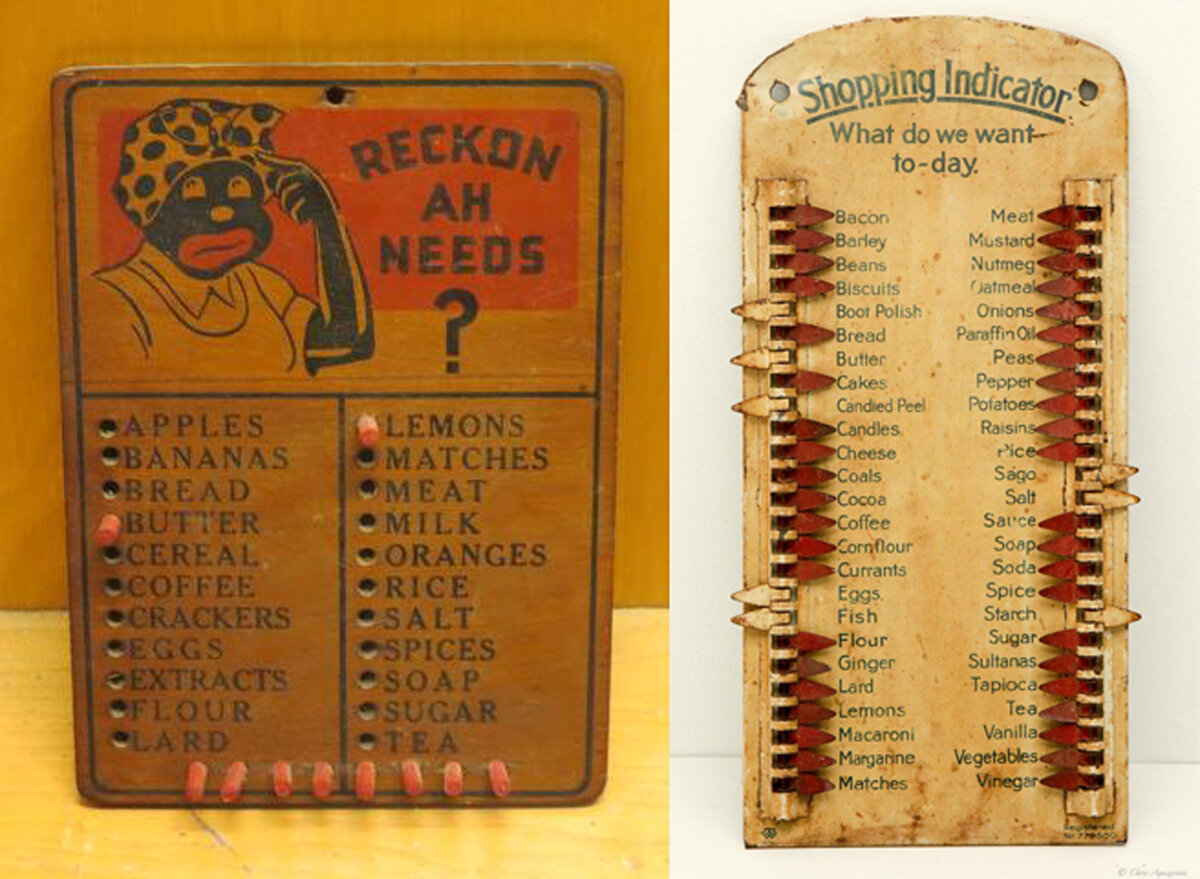 RECKON
AH
NEEDS
?
APPLES
BANANAS
BREAD
BUTTER
CEREAL
COFFEE
CRACKERS
EGGS
EXTRACTS
FLOUR
LARD
LEMONS
MATCHES
MEAT
MILK
ORANGES
RICE
SALT
SPICES
SOAP
SUGAR
TEA
Shopping Indicator
What do we want
to-day.
Bacon
Barley
Beans
Biscuits
Boot Polish
Bread
Butter
Cakes
Candied Peel
Candles
Cheese
Coals
Cocoa
Coffee
Cornflour
Currants
Eggs.
Fish
Flour
Ginger
Lard
Lemons
Macaroni
Margarine
Matches
Meat
Mustard
Nutmeg
Oatmeal
Onions
Paraffin Oil
Peas
Pepper
Potatoes
Raisins
Rice
Sago
Salt
Sauce
Soap
Soda
Spice
Starch
Sugar
Sultanas
Tapioca
Tea
Vanilla
Vegetables
Vinegar
Registered